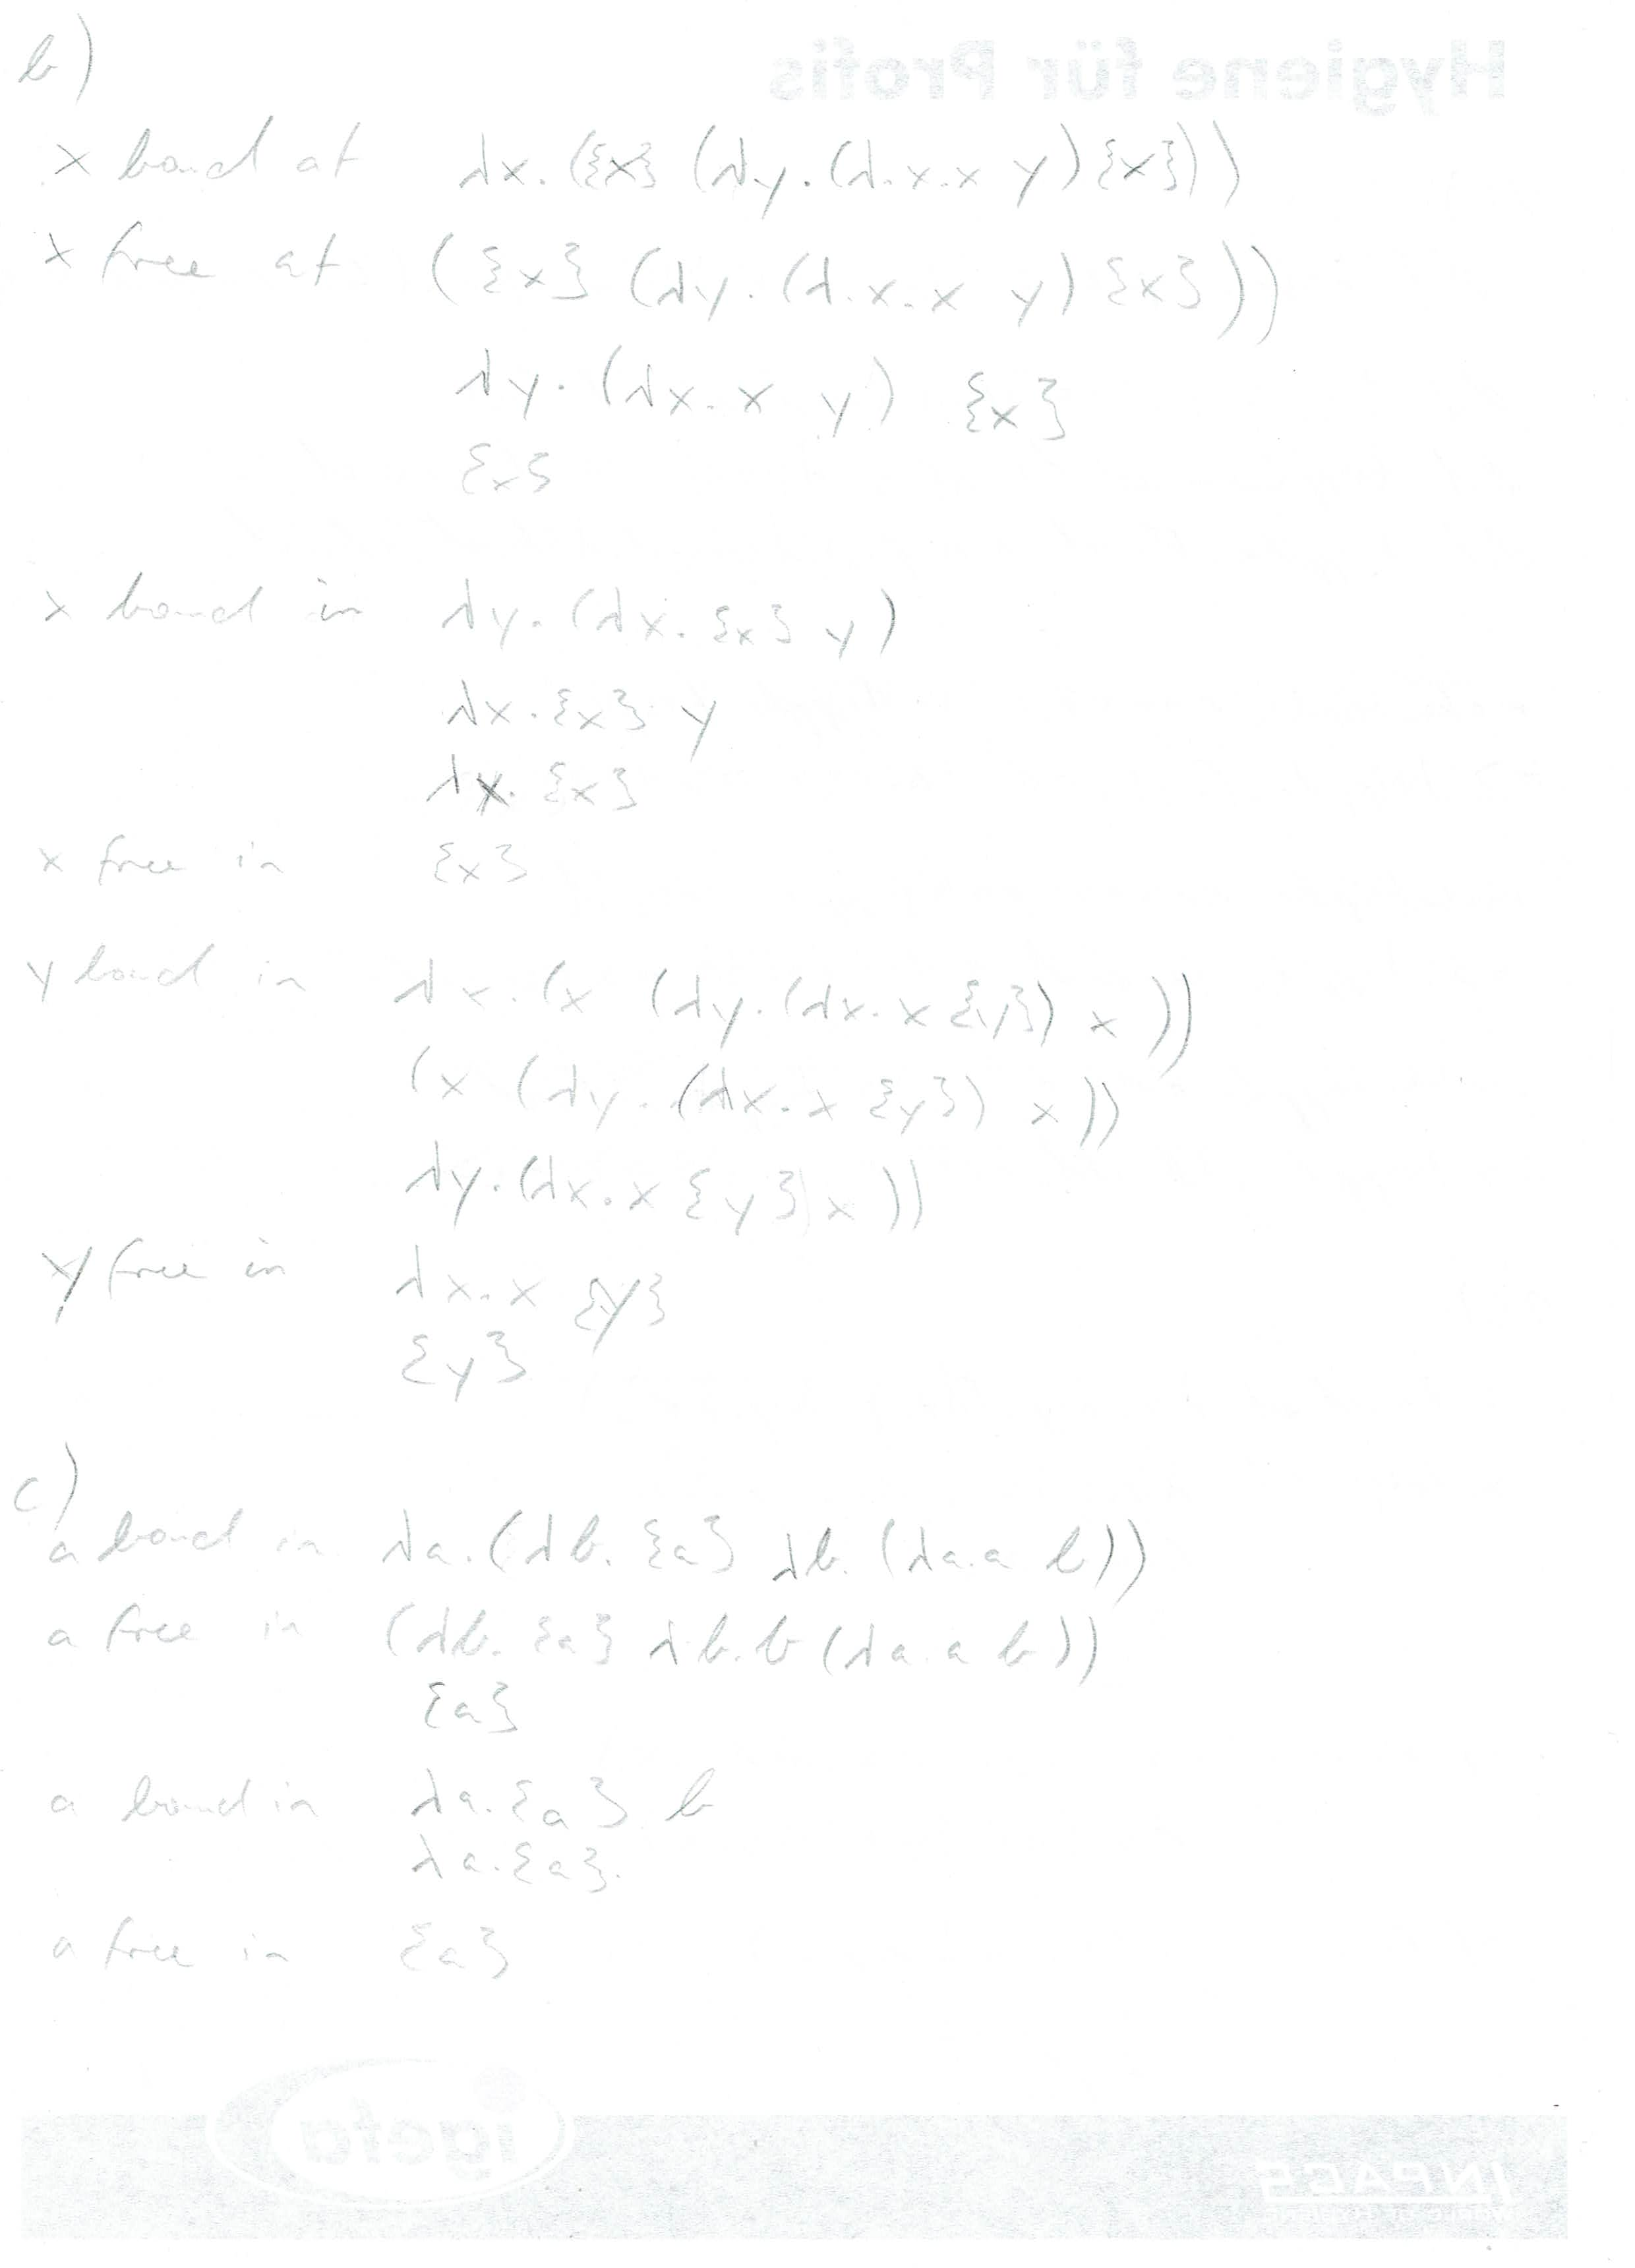 Hygiene für Profis
b)
x bound at λx.({x} (λy.(λ.x.x y){x}))
x free at ({x} (λy.(λ.x.x y){x}))
λy.(λx.x y) {x}
{x}
x bound in λy.(λx.{x} y)
λx.{x} y
λx.{x}
x free in {x}
y bound in λx.(x (λy.(λx.x{y}) x))
(x (λy.(λx.x {y}) x))
λy.(λx.x {y}) x))
y free in λx.x {y}
{y}
c)
a bound in λa.(λb.{a} λb.(λa.a b))
a free in (λb.{a} λb.b(λa.a b))
{a}
a bound in λa.{a} b
λa.{a}.
a free in {a}
igefa
INPACS